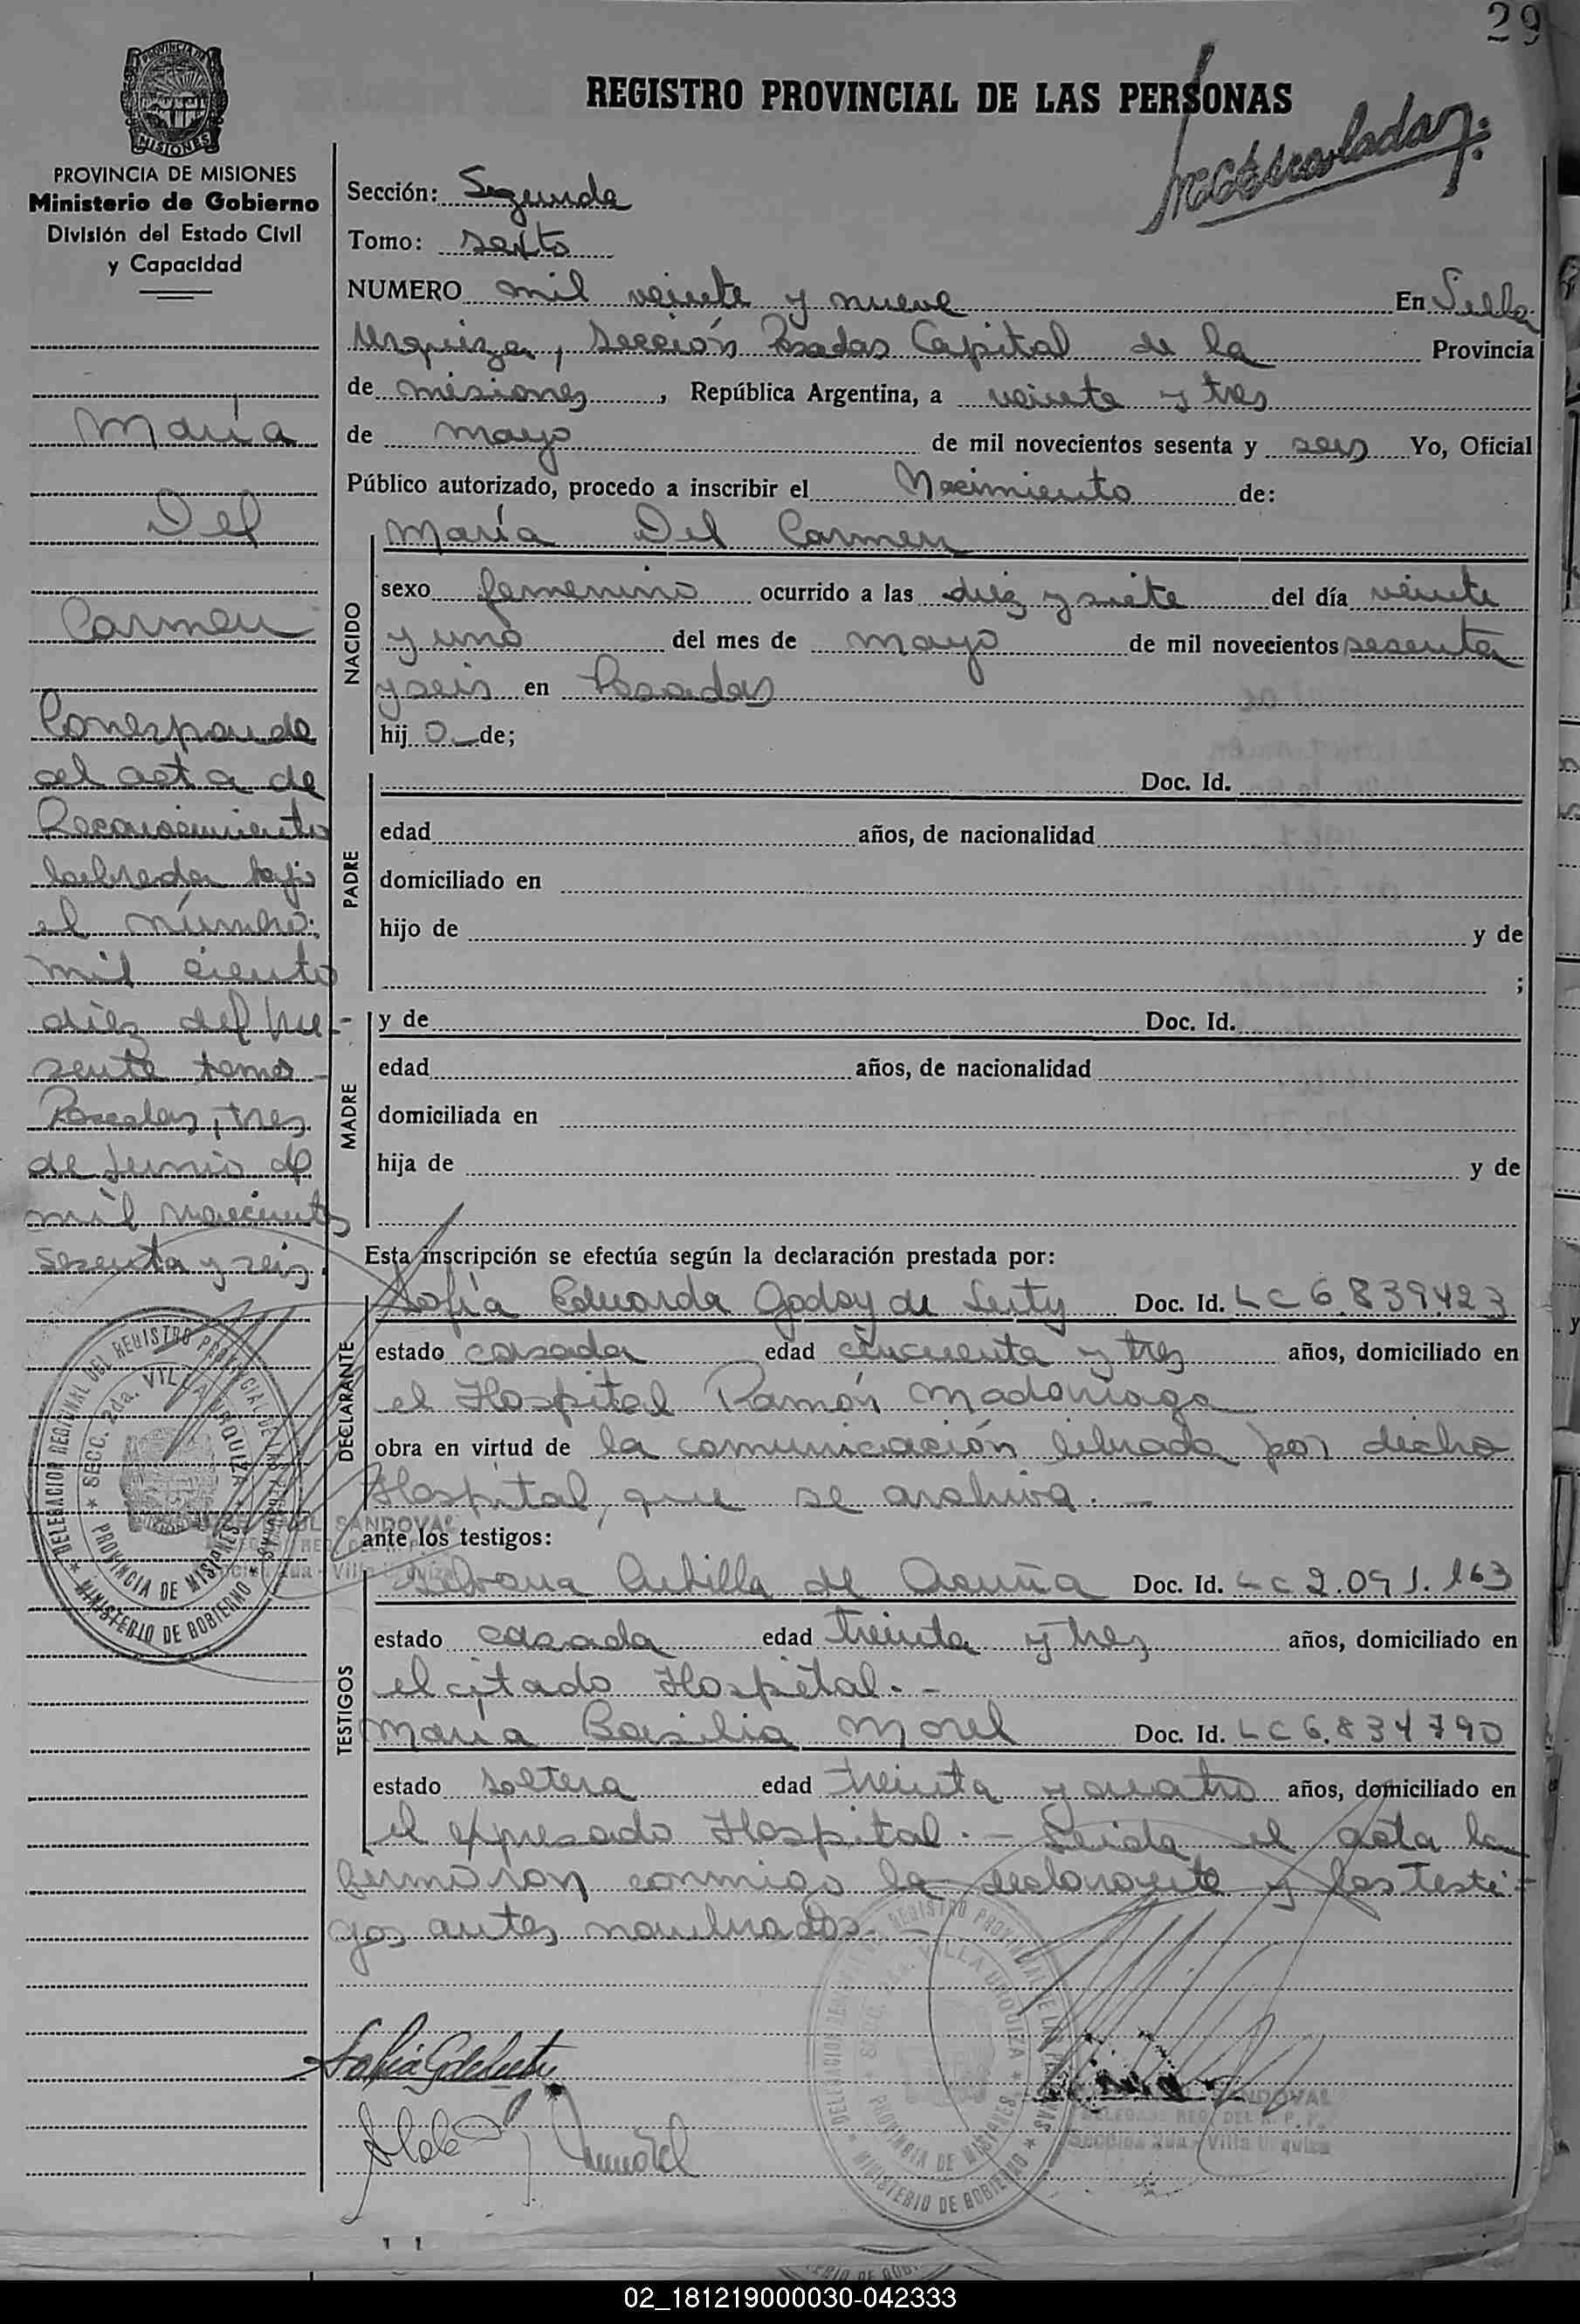 29
REGISTRO PROVINCIAL DE LAS PERSONAS
PROVINCIA DE MISIONES
Ministerio de Gobierno
División del Estado Civil
y Capacidad
Sección: Segunda
Tomo: sexto
NUMERO mil veinte y nueve En Villa
Urquiza, Sección Posadas Capital de la Provincia
de misiones, República Argentina, a veinte y tres
de mayo de mil novecientos sesenta y seis Yo, Oficial
Público autorizado, procedo a inscribir el Nacimiento de:
María
Del
Carmen
Corresponde
al acta de
Reconocimiento
labrada bajo
el número:
mil ciento
diez del pre-
sente tomo
Posadas, tres
de junio de
mil novecientos
sesenta y seis.
NACIDO
María Del Carmen
sexo femenino ocurrido a las diez y siete del día veinte
y uno del mes de mayo de mil novecientos sesenta
y seis en Posadas
hij o de;
PADRE
Doc. Id.
edad años, de nacionalidad
domiciliado en
hijo de y de
;
MADRE
y de Doc. Id.
edad años, de nacionalidad
domiciliada en
hija de y de
Esta inscripción se efectúa según la declaración prestada por:
DECLARANTE
Sofía Eduarda Godoy de Doc. Id. LC 6.839.423
estado casada edad cincuenta y tres años, domiciliado en
el Hospital Ramón Madariaga
obra en virtud de la comunicación librada por dicho
Hospital, que se archiva. -
ante los testigos:
TESTIGOS
de Acuña Doc. Id. LC 2.091.163
estado casada edad treinta y tres años, domiciliado en
el citado Hospital. -
María Basilia Morel Doc. Id. LC 6.834790
estado soltera edad treinta y cuatro años, domiciliado en
el expresado Hospital. - Leida el acta la
firmaron conmigo la declarante y los testi-
gos antes nombrados. -
DELEGACION REGIONAL DEL REGISTRO PROVINCIAL DE LAS PERSONAS
SECC. 2da. VILLA URQUIZA
PROVINCIA DE MISIONES
MINISTERIO DE GOBIERNO
SANDOVAL
DELEGADO REG. DEL R. P. P.
Sección 2da - Villa Urquiza
02_181219000030-042333